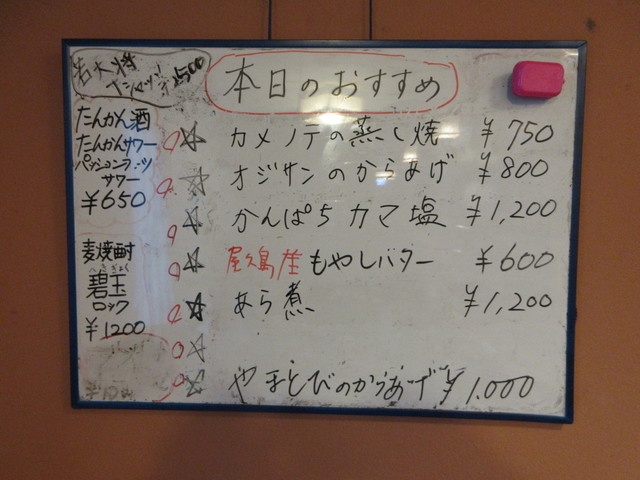 若大将
Tシャツ!
¥2500
本日のおすすめ
たんかん酒
たんかんサワー
パッションフルーツ
サワー
¥650
麦焼酎
へきぎょく
碧玉
ロック
¥1200
カメノテの蒸し焼 ¥750
オジサンのからあげ ¥800
かんぱちカマ塩 ¥1,200
屋久島産もやしバター ¥600
あら煮 ¥1,200
やまとびのからあげ ¥1.000